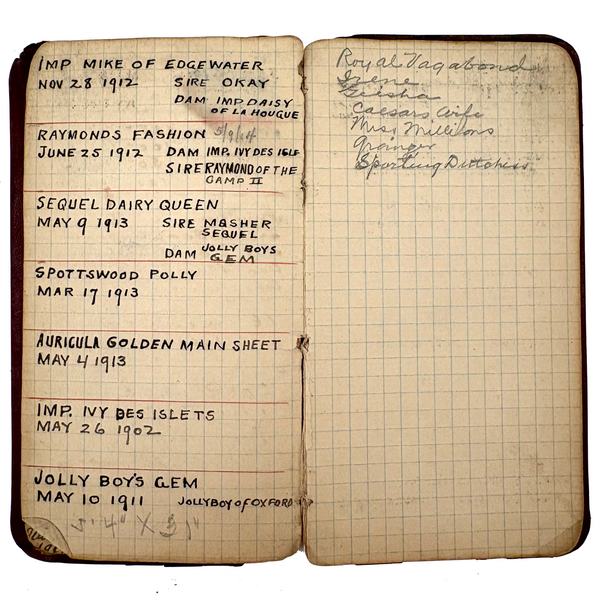 IMP MIKE OF EDGEWATER
NOV 28 1912 SIRE OKAY
DAM IMP DAISY
OF LA HOUGUE
RAYMONDS FASHION 5/9/14
JUNE 25 1912 DAM IMP. IVY DES ISLE
SIRE RAYMOND OF THE
CAMP II
SEQUEL DAIRY QUEEN
MAY 9 1913 SIRE MASHER
SEQUEL
DAM JOLLY BOYS
GEM
SPOTTSWOOD POLLY
MAR 17 1913
AURICULA GOLDEN MAIN SHEET
MAY 4 1913
IMP. IVY DES ISLETS
MAY 26 1902
JOLLY BOY'S GEM
MAY 10 1911 JOLLY BOY of OXFORD
5'4" X 31"
Royal Vagabond
Irene
Geisha
Caesars Wife
Mrs. Millions
Grainger
Sporting Dutchess